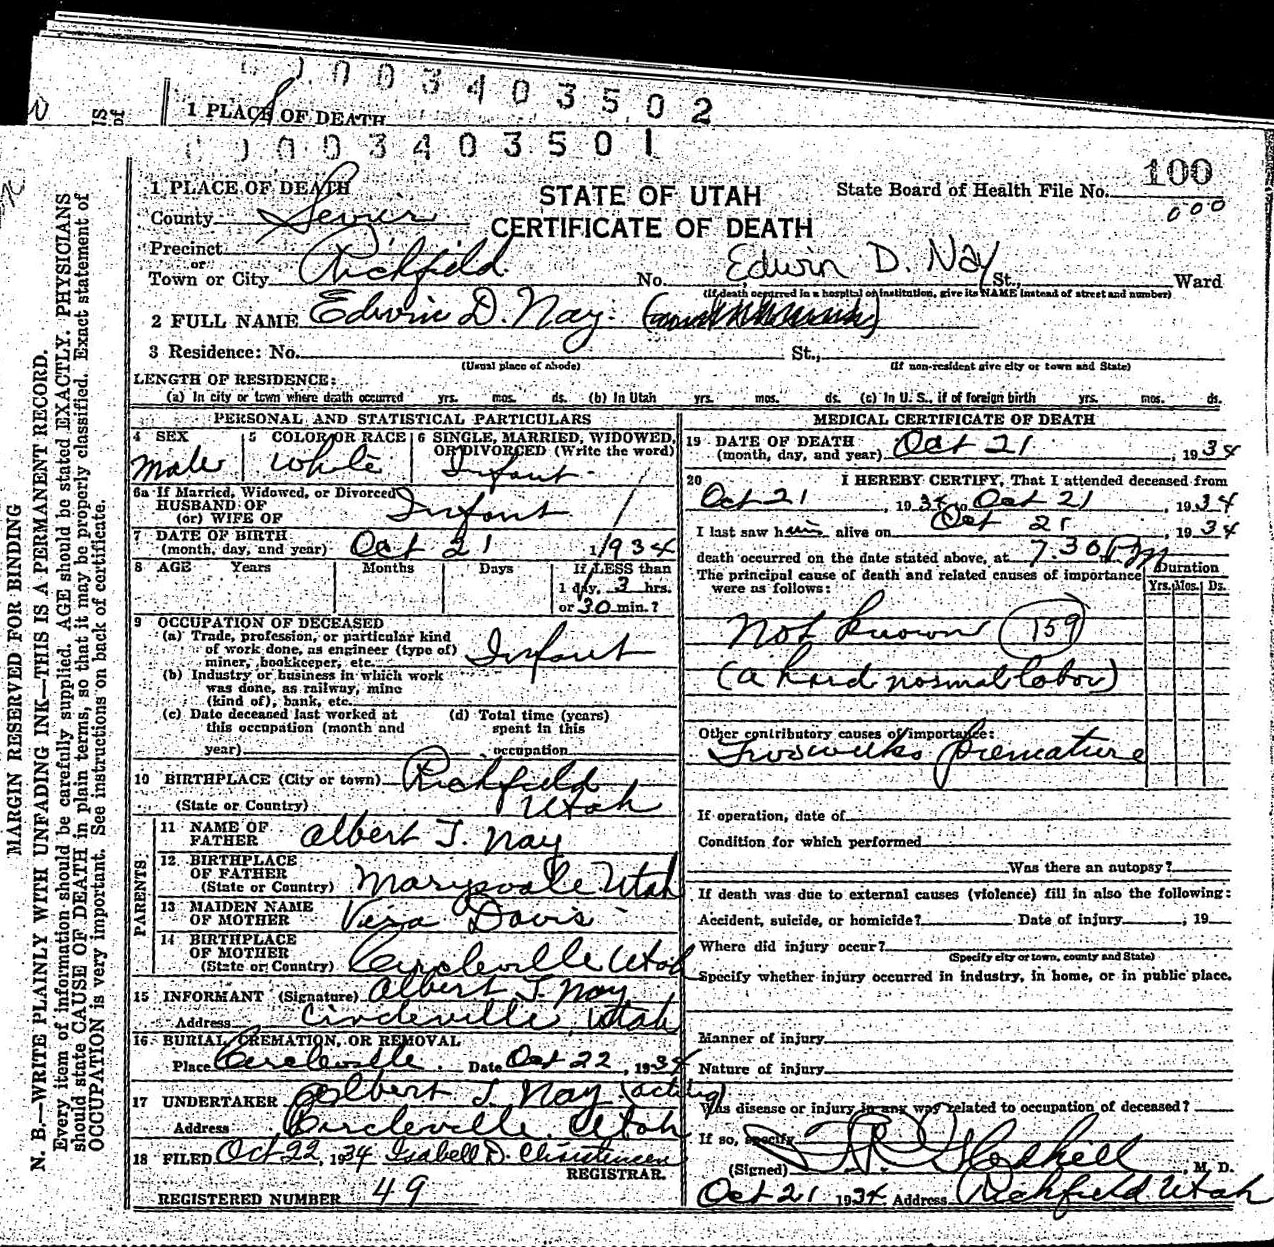 0003403502
1 PLACE OF DEATH
0003403501
100
1 PLACE OF DEATH
STATE OF UTAH
State Board of Health File No.
000
County Sevier
CERTIFICATE OF DEATH
Precinct
or
Town or City Richfield No. Edwin D. Nay St., Ward
(If death occurred in a hospital or institution, give its NAME instead of street and number)
2 FULL NAME Edwin D. Nay
3 Residence: No. St.,
(Usual place of abode) (If non-resident give city or town and State)
LENGTH OF RESIDENCE:
(a) In city or town where death occurred yrs. mos. ds. (b) In Utah yrs. mos. ds. (c) In U. S., if of foreign birth yrs. mos. ds.
PERSONAL AND STATISTICAL PARTICULARS
4 SEX 5 COLOR OR RACE 6 SINGLE, MARRIED, WIDOWED,
OR DIVORCED (Write the word)
Male White Infant
6a If Married, Widowed, or Divorced
HUSBAND OF
(or) WIFE OF Infant
7 DATE OF BIRTH
(month, day, and year) Oct 21 1934
8 AGE Years Months Days If LESS than
1 day, 3 hrs.
or 30 min.?
9 OCCUPATION OF DECEASED
(a) Trade, profession, or particular kind
of work done, as engineer (type of)
miner, bookkeeper, etc. Infant
(b) Industry or business in which work
was done, as railway, mine
(kind of), bank, etc.
(c) Date deceased last worked at (d) Total time (years)
this occupation (month and spent in this
year) occupation
10 BIRTHPLACE (City or town) Richfield
(State or Country) Utah
PARENTS
11 NAME OF
FATHER Albert J. Nay
12 BIRTHPLACE
OF FATHER
(State or Country) Marysvale Utah
13 MAIDEN NAME
OF MOTHER Vera Davis
14 BIRTHPLACE
OF MOTHER
(State or Country) Circleville Utah
15 INFORMANT (Signature) Albert J. Nay
Address Circleville, Utah
16 BURIAL, CREMATION, OR REMOVAL
Place Circleville Date Oct 22, 1934
17 UNDERTAKER Albert J. Nay (acting)
Address Circleville Utah
18 FILED Oct 22, 1934 Isabell D. Christensen
REGISTRAR.
REGISTERED NUMBER 49
MEDICAL CERTIFICATE OF DEATH
19 DATE OF DEATH
(month, day, and year) Oct 21, 1934
20 I HEREBY CERTIFY, That I attended deceased from
Oct 21, 1934 to Oct 21, 1934
I last saw him alive on Oct 21, 1934
death occurred on the date stated above, at 7.30 P m
The principal cause of death and related causes of importance
were as follows:
Duration
Yrs. Mos. Ds.
Not known 159
(a hard normal labor)
Other contributory causes of importance:
Two weeks premature
If operation, date of
Condition for which performed
Was there an autopsy?
If death was due to external causes (violence) fill in also the following:
Accident, suicide, or homicide? Date of injury, 19
Where did injury occur?
(Specify city or town, county and State)
Specify whether injury occurred in industry, in home, or in public place.
Manner of injury
Nature of injury
Was disease or injury in any way related to occupation of deceased?
If so, specify
(Signed) , M. D.
Oct 21 1934 Address Richfield Utah
MARGIN RESERVED FOR BINDING
N. B.—WRITE PLAINLY WITH UNFADING INK—THIS IS A PERMANENT RECORD.
Every item of information should be carefully supplied. AGE should be stated EXACTLY. PHYSICIANS
should state CAUSE OF DEATH in plain terms, so that it may be properly classified. Exact statement of
OCCUPATION is very important. See instructions on back of certificate.